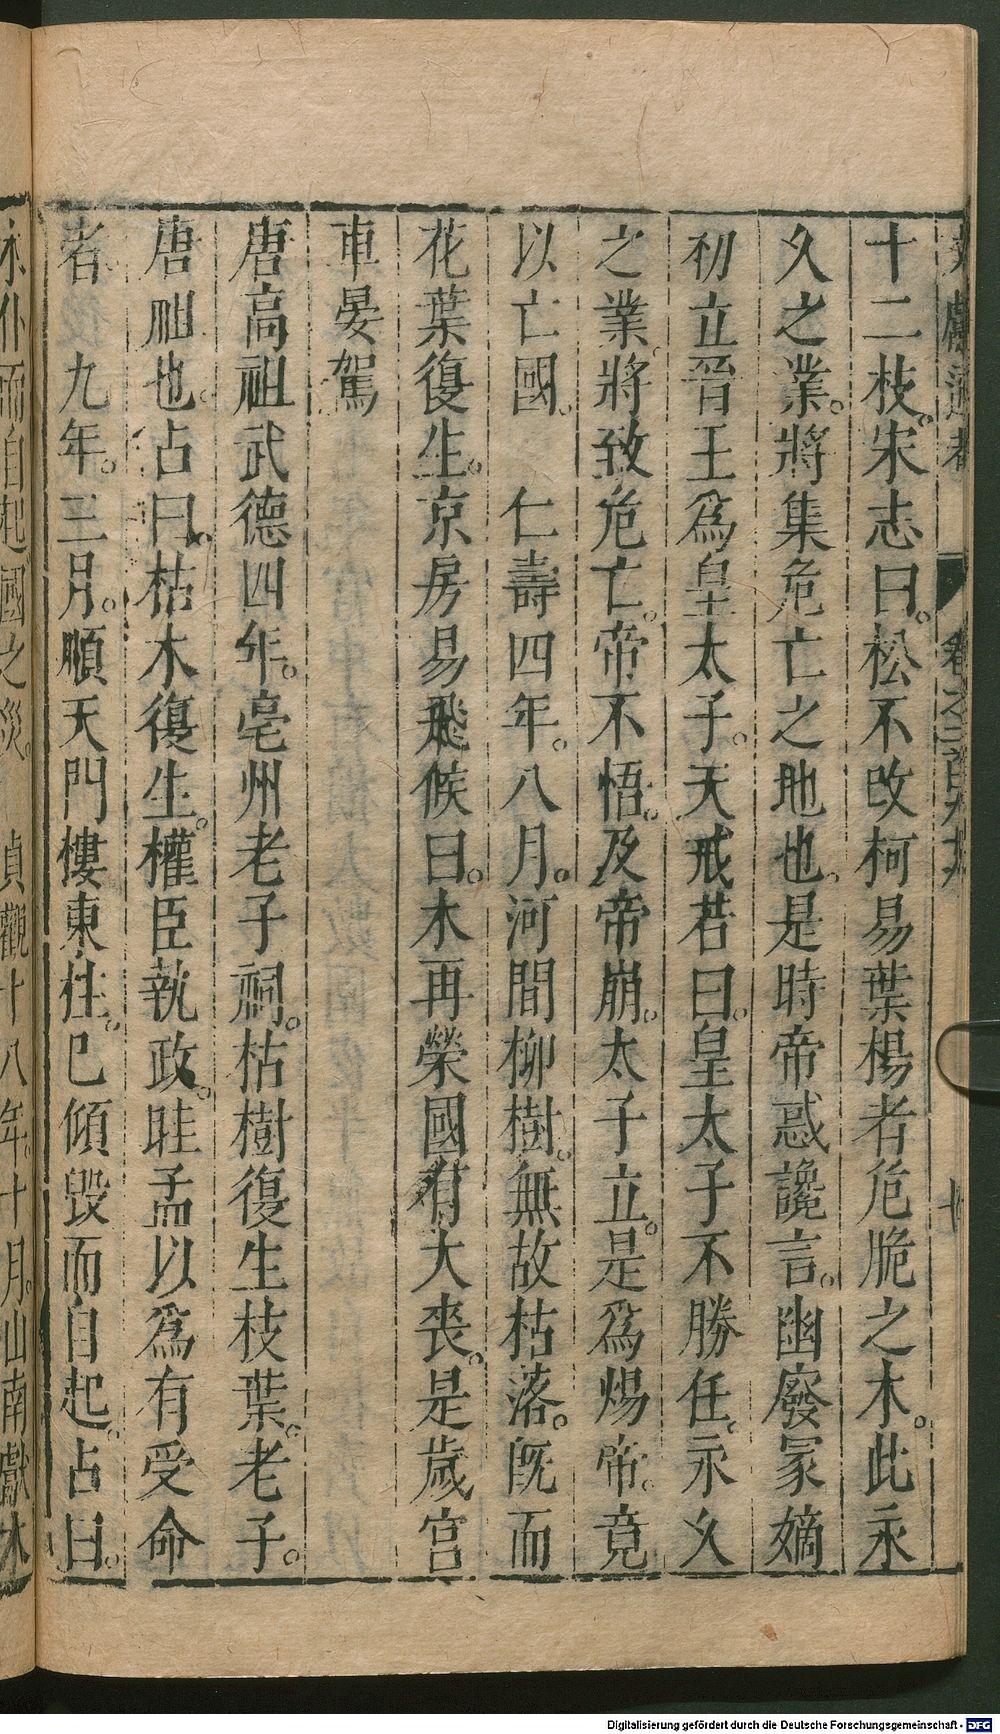 十二枝。宋志曰。松不改柯易葉楊者危脆之木。此永
久之業。將集危亡之地也。是時帝惑讒言。幽廢冢嫡
初立晉王爲皇太子。天戒若曰。皇太子不勝任。永久
之業。將致危亡。帝不悟。及帝崩。太子立。是爲煬帝。竟
以亡國。 仁壽四年。八月。河間柳樹。無故枯落。旣而
花葉復生。京房易飛候曰。木再榮國有大喪。是歲宮
車晏駕
唐高祖武德四年。亳州老子祠。枯樹復生枝葉。老子。
唐祖也。占曰。枯木復生。權臣執政。眭孟以爲有受命
者。 九年。三月。順天門樓東柱。已傾毀而自起。占曰。
木仆而自起。國之災。 貞觀十八年。十月。山南獻木
文獻通考 卷之三百九十九 七
Digitalisierung gefördert durch die Deutsche Forschungsgemeinschaft - DFG